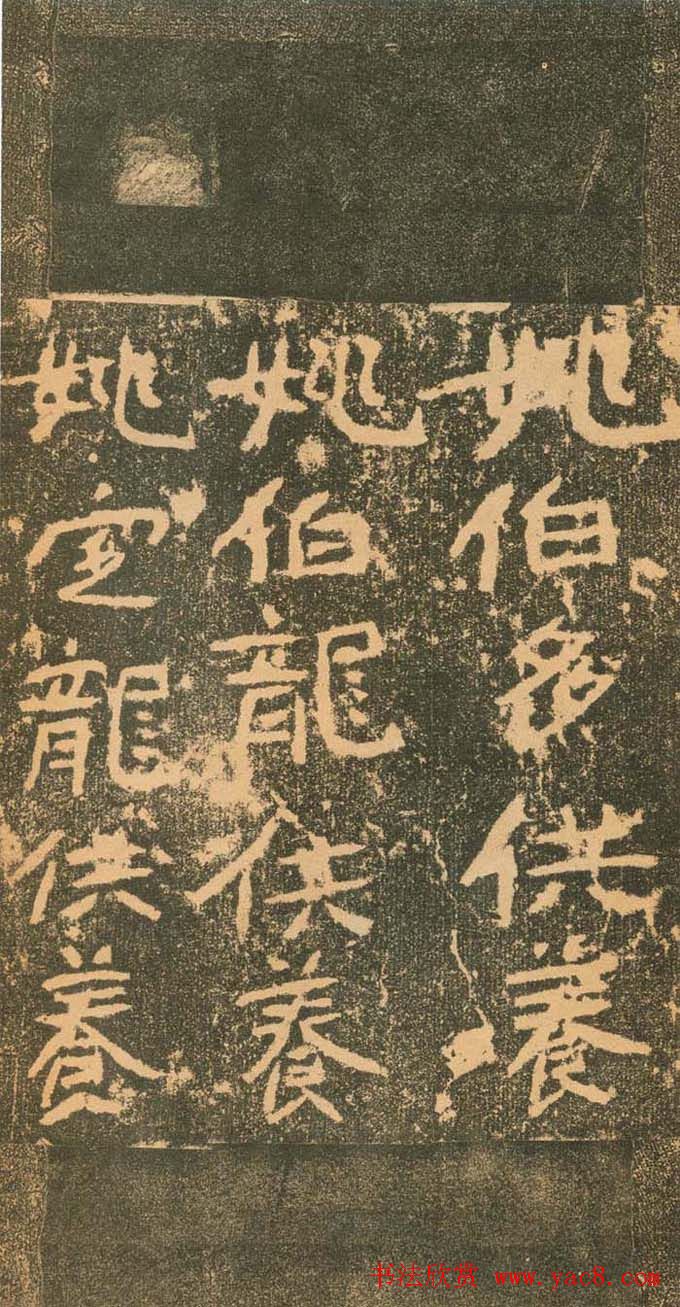 姚伯多供養
姚伯龍供養
姚定龍供養
书法欣赏 www.yac8.com